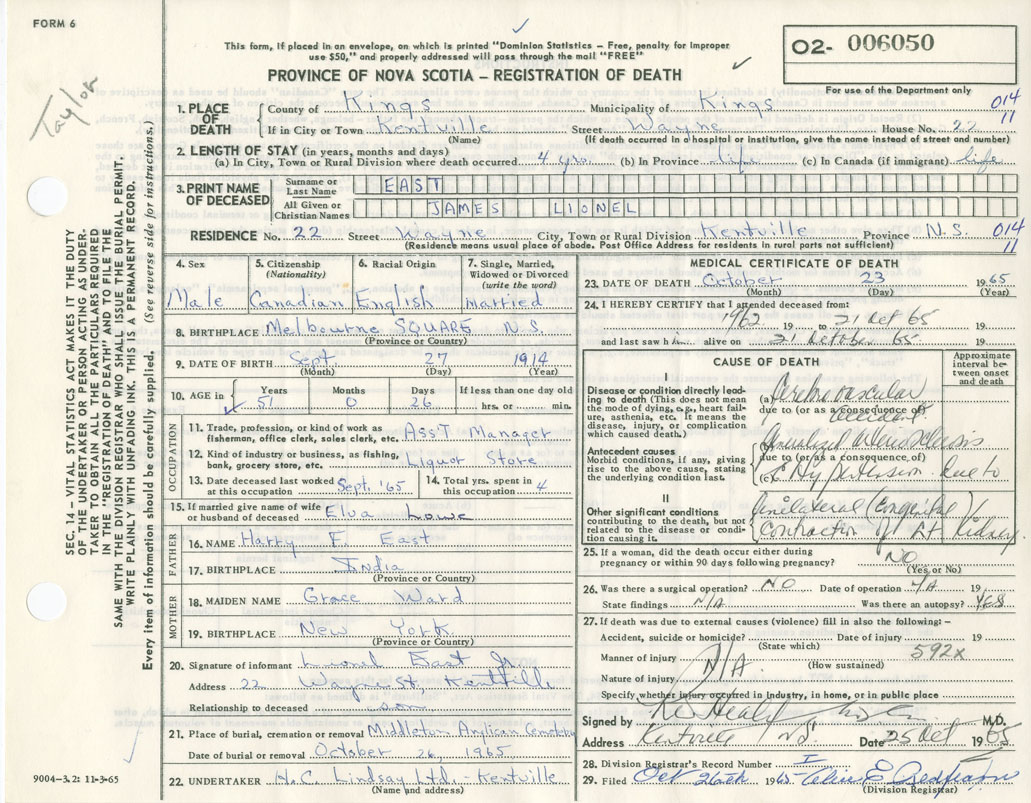 FORM 6
This form, if placed in an envelope, on which is printed "Dominion Statistics - Free, penalty for improper
use $50," and properly addressed will pass through the mail "FREE"
O2- 006050
For use of the Department only
PROVINCE OF NOVA SCOTIA - REGISTRATION OF DEATH
Taylor
SEC. 14 - VITAL STATISTICS ACT MAKES IT THE DUTY
OF THE UNDERTAKER OR PERSON ACTING AS UNDER-
TAKER TO OBTAIN ALL THE PARTICULARS REQUIRED
IN THE "REGISTRATION OF DEATH" AND TO FILE THE
SAME WITH THE DIVISION REGISTRAR WHO SHALL ISSUE THE BURIAL PERMIT.
WRITE PLAINLY WITH UNFADING INK. THIS IS A PERMANENT RECORD.
Every item of information should be carefully supplied. (See reverse side for instructions.)
1. PLACE OF DEATH County of Kings Municipality of Kings 014 11
If in City or Town Kentville Street Wayne House No. 22
(Name) (If death occurred in a hospital or institution, give the name instead of street and number)
2. LENGTH OF STAY (in years, months and days)
(a) In City, Town or Rural Division where death occurred 4 yrs. (b) In Province life (c) In Canada (if immigrant) life
3. PRINT NAME OF DECEASED Surname or Last Name EAST
All Given or Christian Names JAMES LIONEL
RESIDENCE No. 22 Street Wayne City, Town or Rural Division Kentville Province N.S. 014 11
(Residence means usual place of abode. Post Office Address for residents in rural parts not sufficient)
4. Sex Male
5. Citizenship (Nationality) Canadian
6. Racial Origin English
7. Single, Married, Widowed or Divorced (write the word) Married
8. BIRTHPLACE Melbourne SQUARE N.S.
(Province or Country)
9. DATE OF BIRTH Sept. 27 1914
(Month) (Day) (Year)
10. AGE in Years 51 Months 0 Days 26 If less than one day old hrs. or min.
OCCUPATION
11. Trade, profession, or kind of work as fisherman, office clerk, sales clerk, etc. Ass'T Manager
12. Kind of industry or business, as fishing, bank, grocery store, etc. Liquor Store
13. Date deceased last worked at this occupation Sept. '65
14. Total yrs. spent in this occupation 4
15. If married give name of wife or husband of deceased Elva Lowe
FATHER
16. NAME Harry F. East
17. BIRTHPLACE India
(Province or Country)
MOTHER
18. MAIDEN NAME Grace Ward
19. BIRTHPLACE New York
(Province or Country)
20. Signature of informant Lionel East Jr.
Address 22 Wayne St, Kentville
Relationship to deceased son
21. Place of burial, cremation or removal Middleton Anglican Cemetery
Date of burial or removal October 26, 1965
22. UNDERTAKER H.C. Lindsay Ltd. - Kentville
(Name and address)
9004-3.2: 11-3-65
MEDICAL CERTIFICATE OF DEATH
23. DATE OF DEATH October 23 1965
(Month) (Day) (Year)
24. I HEREBY CERTIFY that I attended deceased from:
1962 19 to 21 Oct 65 19
and last saw h alive on 21 October 65 19
CAUSE OF DEATH
Approximate interval between onset and death
I
Disease or condition directly leading to death (This does not mean the mode of dying, e.g., heart failure, asthenia, etc. It means the disease, injury, or complication which caused death.)
(a) Cerebro vascular accident
due to (or as a consequence of)
Antecedent causes
Morbid conditions, if any, giving rise to the above cause, stating the underlying condition last.
Generalized arteriosclerosis
due to (or as a consequence of)
(c) & Hypertension due to
II
Other significant conditions contributing to the death, but not related to the disease or condition causing it.
Unilateral (Congenital) Contraction of Lt Kidney.
25. If a woman, did the death occur either during pregnancy or within 90 days following pregnancy? NO
(Yes or No)
26. Was there a surgical operation? NO Date of operation N/A
State findings N/A Was there an autopsy? YES
27. If death was due to external causes (violence) fill in also the following: -
Accident, suicide or homicide? Date of injury 19
(State which)
Manner of injury N/A 592x
(How sustained)
Nature of injury
Specify whether injury occurred in industry, in home, or in public place
Signed by M.D.
Address Kentville NS. Date 25 Oct 1965
28. Division Registrar's Record Number I
29. Filed Oct 26th 1965
(Division Registrar)